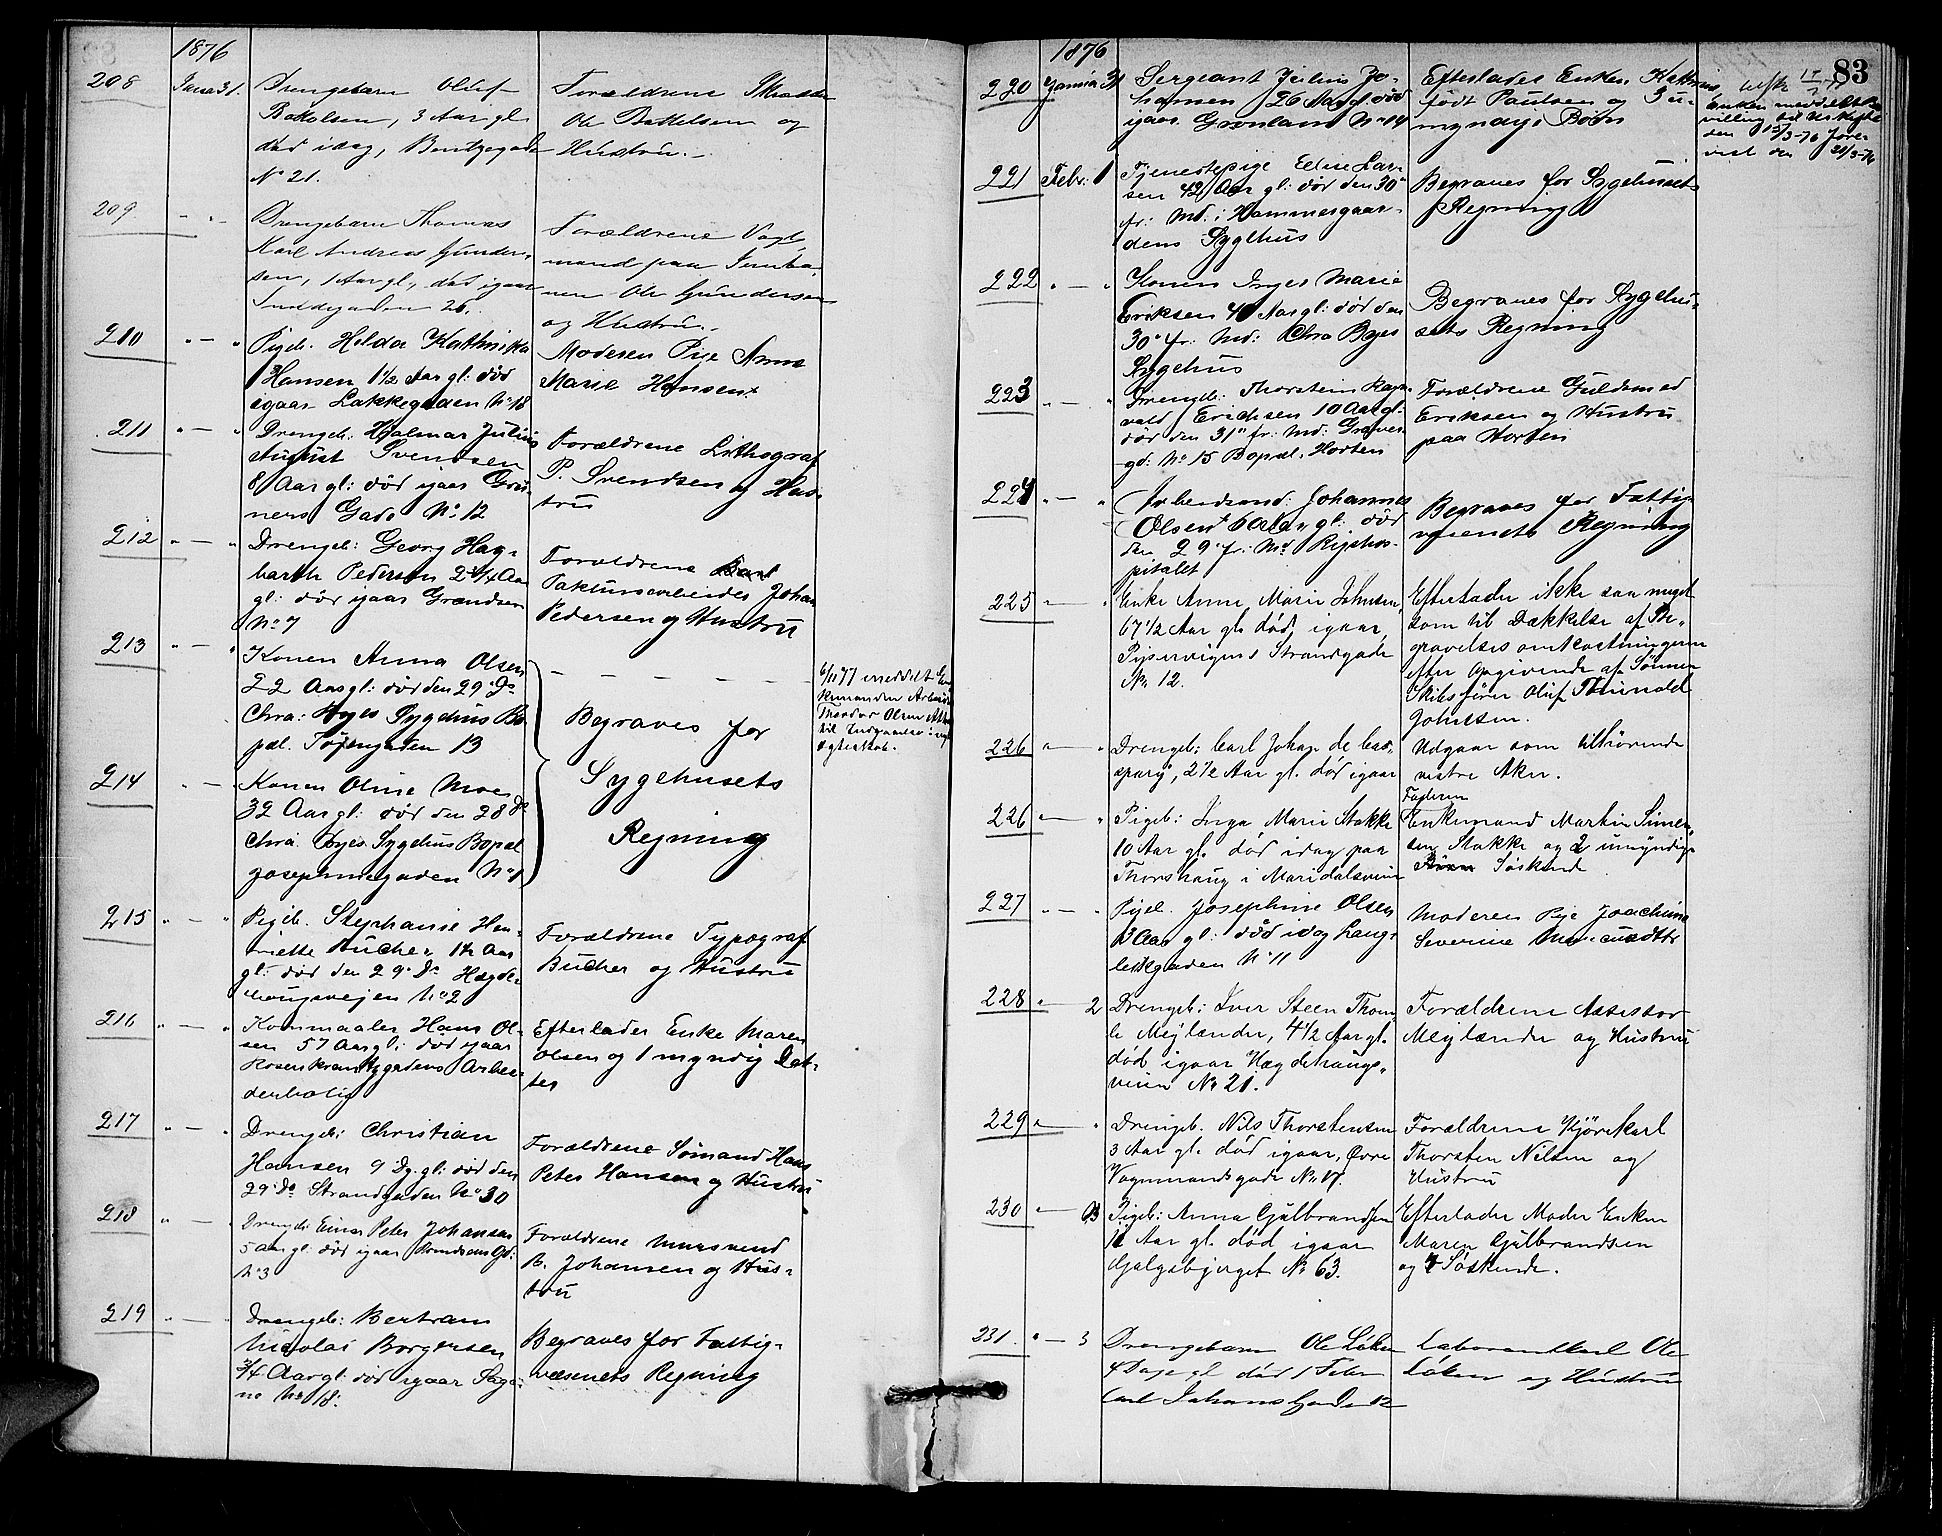 1876
208
Janua 31.
Drengebarn Oluf
3 Aar gl.
død idag, Bentzegade
No 21.
Forældrene
Ole Bottolsen og
Hustru.
209
" — "
Drengebarn Thomas
Karl Andreas Gunder-
sen, 1 Aar gl., død igaar
26.
Forældrene Vogt
mand paa Jernba-
nen Ole Gundersen
og Hustru.
210
" — "
Pigeb. Helda Kathrika
Hansen 1½ Aar gl: død
igaar Lakkegaden No 18
Moderen Pige Anne
Marie Hansen
211
" — "
Drengeb: Hjalmar Julius
August Svendsen
8 Aar gl: død igaar Grü-
ners Gade No 12
Forældrene Lithograf
P. Svendsen og Hus-
tru
212
" — "
Drengeb: Georg Hag-
barth Pedersen 2¼ Aar
gl: død igaar Grændsen
No 7
Forældrene
Johan
Pedersen og Hustru
213
" — "
Konen Anna Olsen
22 Aar gl: død den 29' Ds
Chra: Byes Sygehus Bo-
pæl. Tøjengaden 13
Begraves for
Sygehusets
Regning
6/11 77 meddelt En-
kemanden Arbeid
Theodor Olsen Attest
til Indgaaelse i nyt
Ægteskab.
214
" — "
Konen Oline Moe
32 Aar gl: død den 28 Ds
Chra. Byes Sygehus Bopæl
Josephinegaden No 1
215
" — "
Pigeb. Stephanie Hen-
riette Bucher 1½ Aar
gl: død den 29' Ds Hægde-
haugsvejen No 2
Forældrene Typograf
Bucher og Hustru
216
" — "
Kornmaaler Hans Ol-
sen 57 Aar gl: død igaar
Rosenkrantzgadens Arbei-
derbolig
Efterlader Enke Maren
Olsen og 1 myndig Dat-
ter
217
" — "
Drengeb: Christian
Hansen 9 Dg. gl: død den
29' Ds Strandgaden No 30
Forældrene Sømand Hans
Peter Hansen og Hustru
218
" — "
Drengeb: Einar Peter Johansen
5 Aar gl. død igaar Gd:
No 3
Forældrene Muursvend
B. Johansen og Hus-
tru
219
" — "
Drengeb: Bertram
Nicolai Borgersen
¾ Aar gl. død igaar Sage-
ne No 18.
Begraves for Fattig-
væsenets Regning
1876
83
220
Januar 31
Sergeant Julius Jo-
hansen 26 Aar gl. død
igaar Grønland No 14
Efterlader Enken Kathrine
født Paulsen og 3 u-
myndige Børn
Enken meddelt Be-
villing til
den 15/3-76 Fore-
vist den 20/3-76
221
Febr: 1
Tjenestepige Eline Lar-
sen 42 Aar gl: død den 30'
fr: Md: i Hammersgaar-
dens Sygehus
Begraves for Sygehusets
Regning
222
" — "
Konen Inger Marie
Eriksen 40 Aar gl: død den
30' fr: Md: Chra Byes
Sygehus
Begraves for Sygehu-
sets Regning
223
" — "
Drengeb: Thorstein Ragn-
vald Erichsen 10 Aar gl:
død den 31' fr: Md: Graven-
gd: No 15 Bopæl. Horten
Forældrene Guldsmed
Eriksen og Hustru
paa Horten
224
" — "
Arbeidsmd: Johannes
Olsen gl: død
den 29' fr: Md Rigshos-
pitalet
Begraves for Fattig-
væsenets Regning
225
" — "
Enke Anne Marie Johnsen,
67½ Aar gl. død igaar,
Pipervigens Strandgade
No 12.
Efterlader ikke saa meget
som til Dækkelse af Be-
gravelsesomkostningerne
efter Opgivende af Sønnen
Skibsfører Oluf Thinvald
Johnsen.
226
" — "
Drengeb: Carl Johan de
2½ Aar gl. død igaar
Udgaar som tilhørende
vestre Aker.
226
" — "
Pigeb: Inga Marie Stakke
10 Aar gl. død idag paa
Thorshaug i Maridalsveien
Faderen
Enkemand Martin Simen-
sen Stakke og 2 umyndige
Søskende
227
" — "
Pigeb. Josephine Olsen
Aar gl: død idag Lang-
leikgaden No 11
Moderen Pige Joachime
Severine
228
" — 2
Drengeb: Iver Steen Thom-
le Mejlænder, 4½ Aar gl.
død igaar Hægdehaugs-
veien No 21.
Forældrene Assessor
Mejlænder og Hustru
229
" — "
Drengeb. Nils Thorstensen
3 Aar gl. død igaar, Øvre
Vognmandsgade No 17.
Forældrene Kjørekarl
Thorsten Nilsen og
Hustru
230
" — 3
Pigeb: Anna Gulbrandsen
11 Aar gl. død igaar
Galgebjerget No 63.
Efterlader Moder Enken
Maren Gulbrandsen
og 4 Søskende.
231.
" — 3
Drengebarn Ole Løken
4 Dage gl død 1 Febr
Carl Johans Gade 12
Laborantkarl Ole
Løken og Hustru